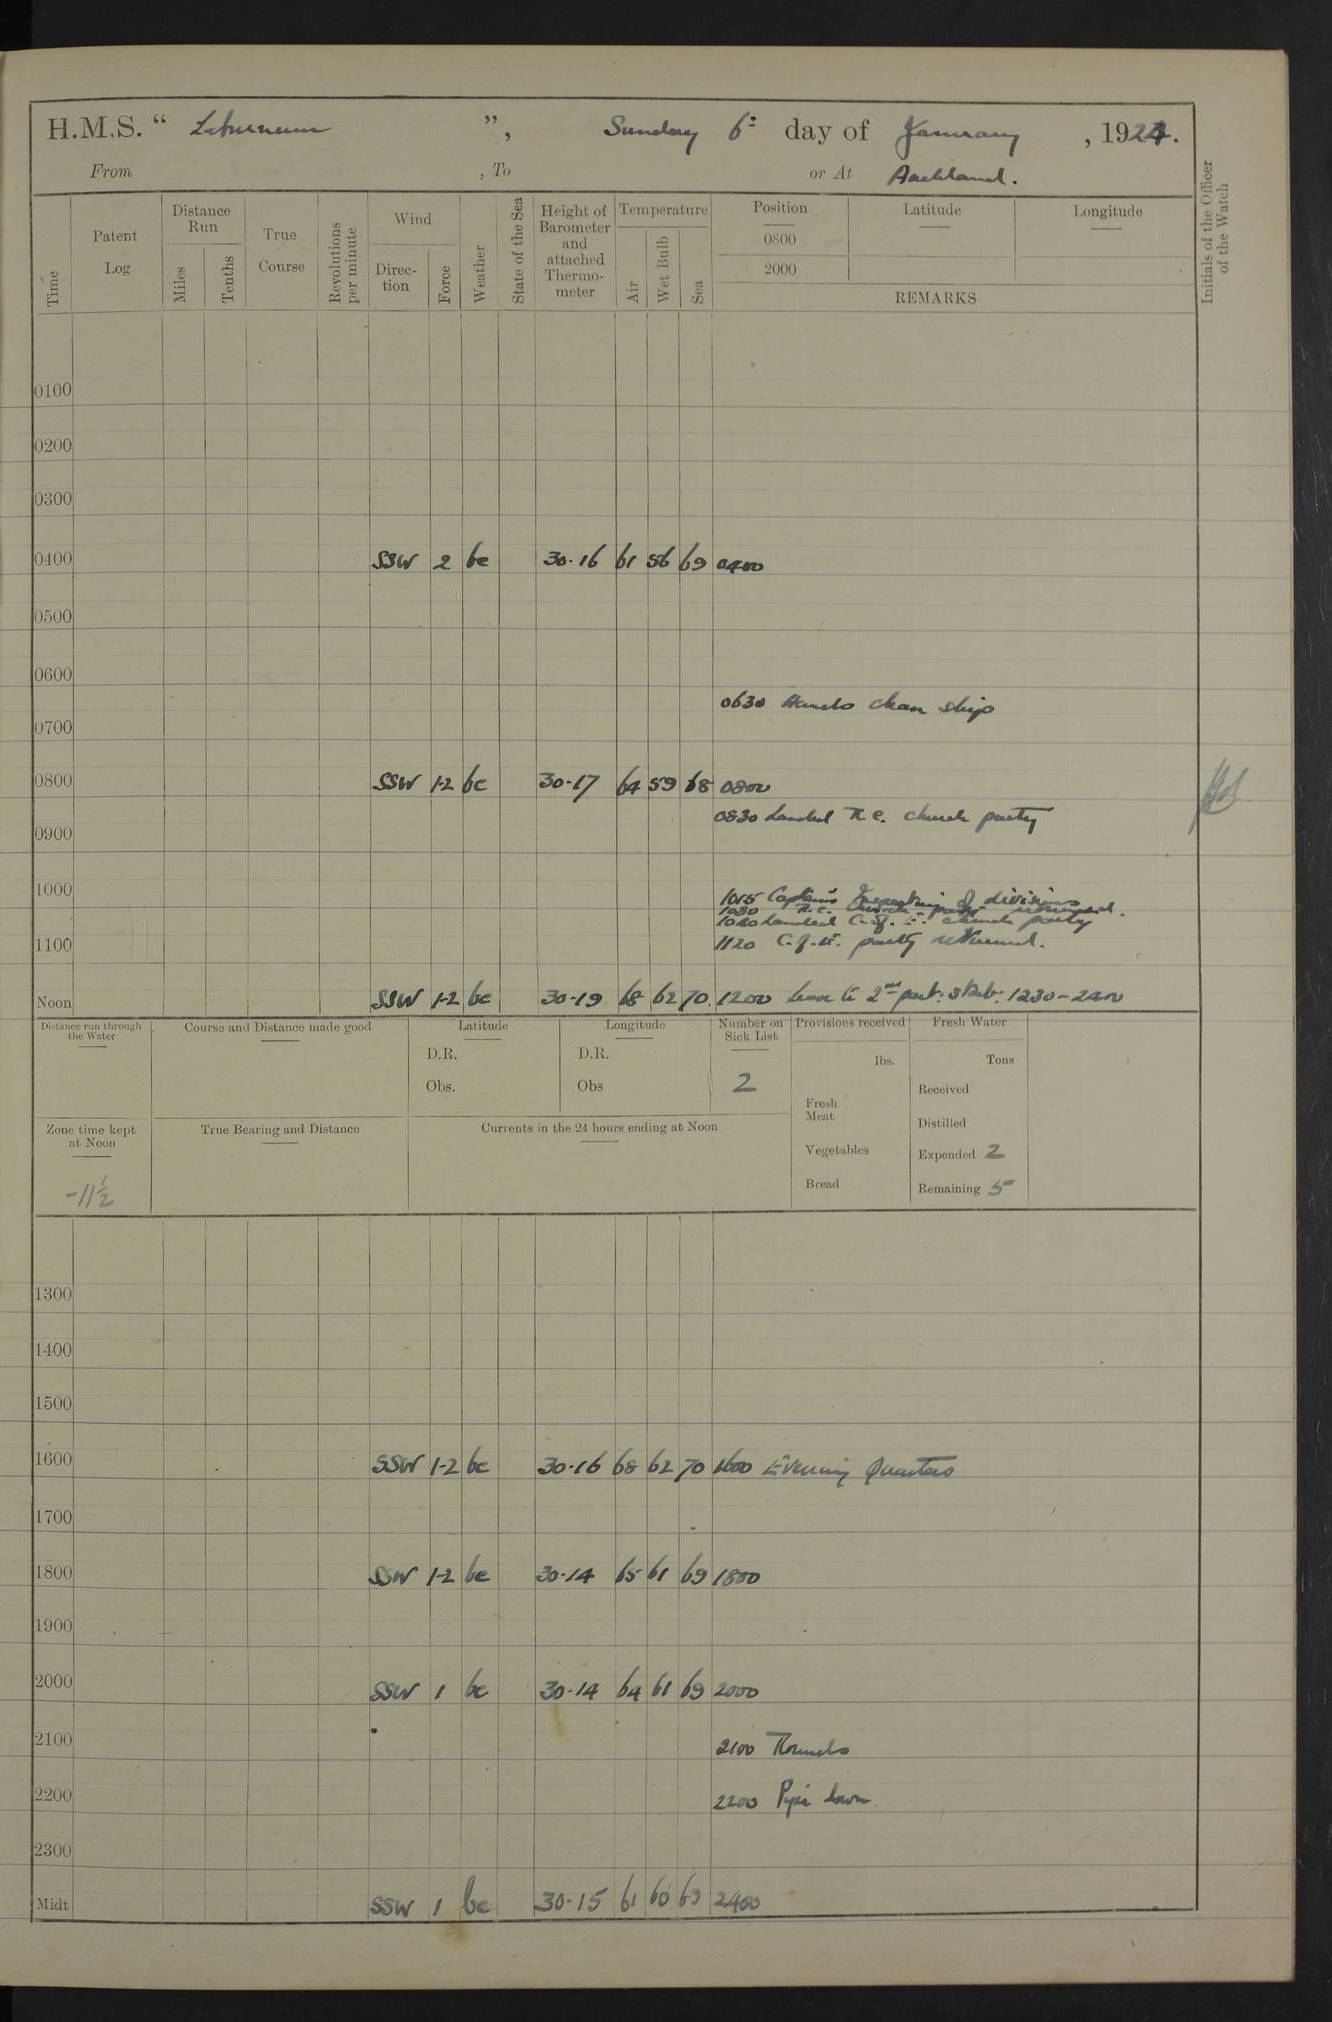 H.M.S. " Laburnum ", Sunday 6th day of January, 1924.
From , To or At Auckland.
Time
Patent Log
Distance Run
Miles
Tenths
True Course
Revolutions per minute
Wind
Direction
Force
Weather
State of the Sea
Height of Barometer and attached Thermometer
Temperature
Air
Wet Bulb
Sea
Position
Latitude
Longitude
0800
2000
REMARKS
Initials of the Officer of the Watch
0100
0200
0300
0400 SSW 2 bc 30·16 61 56 69 0400
0500
0600
0630 Hands clean ship
0700
0800 SSW 1-2 bc 30·17 64 59 68 0800
0830 Landed R.C. church party
0900
1000
1015 Captain's Inspection of divisions
1030 R.C. church party returned.
1020 Landed C. of E. church party
1100
1120 C. of E. party returned.
Noon SSW 1-2 bc 30·19 68 62 70 1200 Leave to 2nd part: Starb: 1230-2400
Distance run through the Water
Course and Distance made good
Latitude
D.R.
Obs.
Longitude
D.R.
Obs
Number on Sick List
2
Provisions received
lbs.
Fresh Meat
Vegetables
Bread
Fresh Water
Tons
Received
Distilled
Expended 2
Remaining 5
Zone time kept at Noon
-11½
True Bearing and Distance
Currents in the 24 hours ending at Noon
1300
1400
1500
1600 SSW 1-2 bc 30·16 68 62 70 1600 Evening Quarters
1700
1800 SSW 1-2 bc 30·14 65 61 69 1800
1900
2000 SSW 1 bc 30·14 64 61 69 2000
2100
2100 Rounds
2200
2200 Pipe down
2300
Midt SSW 1 bc 30·15 61 60 69 2400